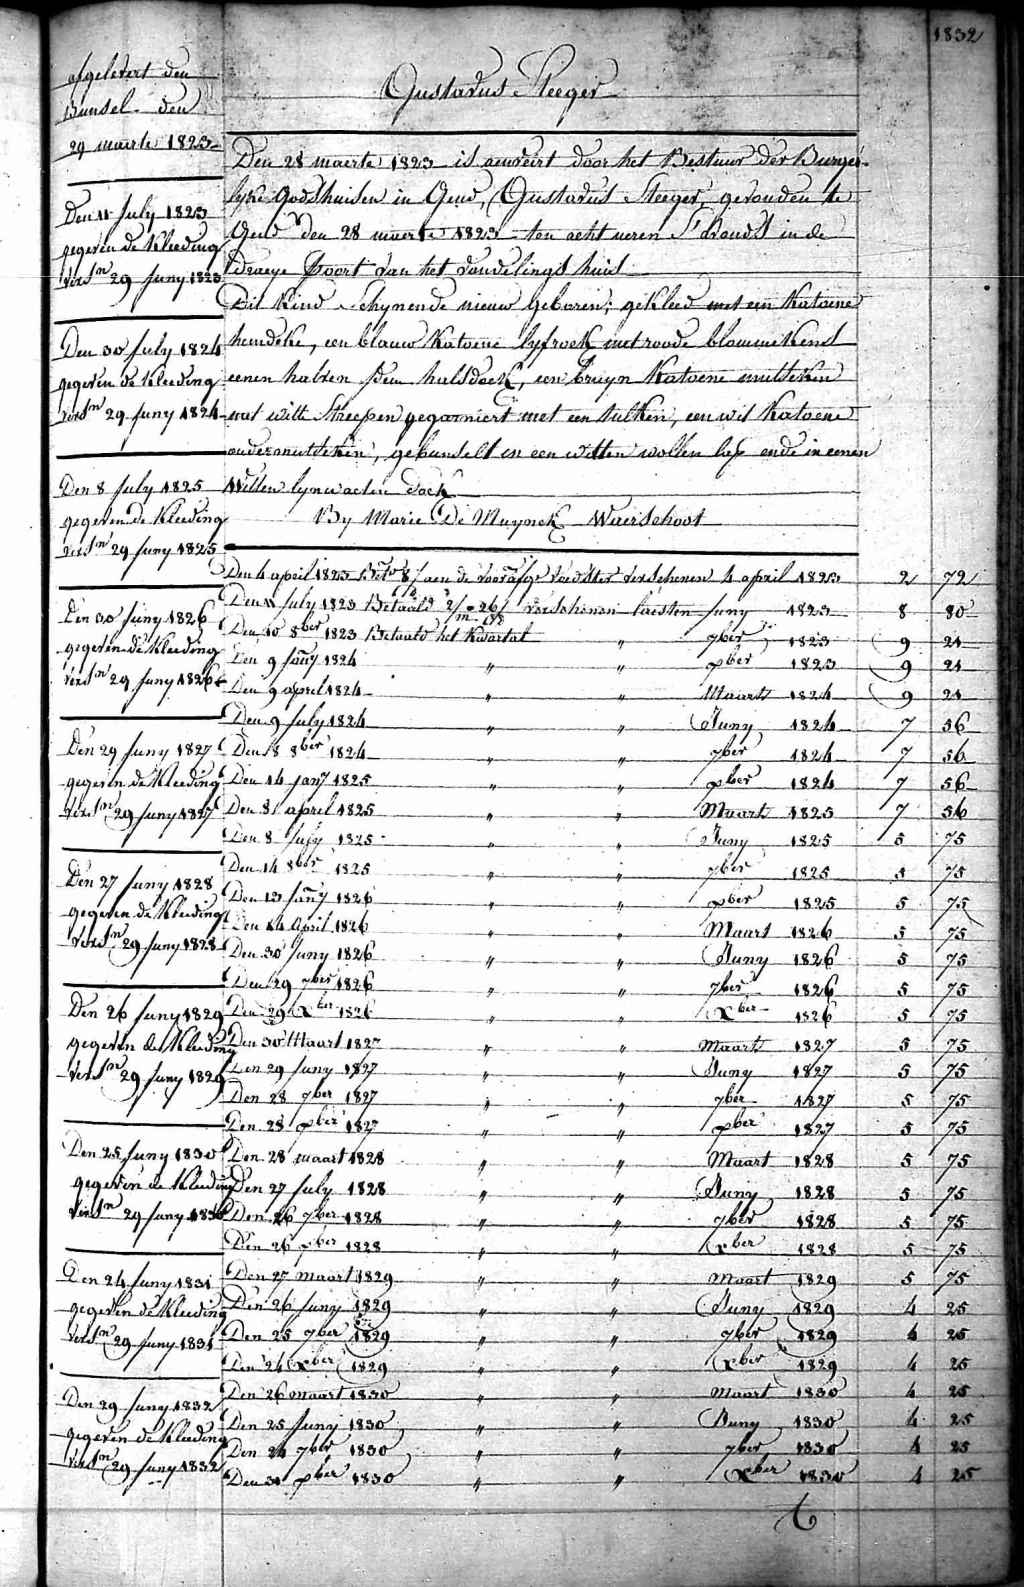 1832
afgelevert den
Bunsel den
29 maerte 1823
Den 11 July 1823
gegeven de Kleeding
versn 29 Juny 1823
Den 30 July 1824
gegeven de Kleeding
versn 29 Juny 1824
Den 8 July 1825
gegeven de Kleeding
versn 29 Juny 1825
Den 30 Juny 1826
gegeven de Kleeding
versn 29 Juny 1826
Den 29 Juny 1827
gegeven de Kleeding
versn 29 Juny 1827
Den 27 Juny 1828
gegeven de Kleeding
versn 29 Juny 1828
Den 26 Juny 1829
gegeven de Kleeding
versn 29 Juny 1829
Den 25 Juny 1830
gegeven de Kleeding
versn 29 Juny 1830
Den 24 Juny 1831
gegeven de Kleeding
versn 29 Juny 1831
Den 29 Juny 1832
gegeven de Kleeding
versn 29 Juny 1832
Gustavus Steeger
Den 28 maerte 1823 is acvreirt door het Bestuur der Burger-
lyke godshuisen in Gend, Gustavus Steeger, gevonden te
Gend den 28 maerte 1823 ten acht ueren S'avonds in de
draeye Poort van het vondelings huis
Dit kind schynende nieuw geboren; gekleed met een katoene
hemdeke, een blauw katoene lyfrock met roode blommekens
eenen halven halsdoek, een bruyn katoene mutseken
met witte streepen gegarniert met een tulken, een wit katoene
ondermutseken, gebunselt in een witten wollen lap ende in eenen
witten lynwaeten doek
By Marie De Muynck Waerschoot
Den 4 april 1823 aen de voedster verschenen 4 april 1823 2 72
Den 11 July 1823 Betaald verschenen laesten Juny 1823 8 80
Den 10 8ber 1823 Betaald het Kwartal " 7ber 1823 9 21
Den 9 Jany 1824 " " xber 1823 9 21
Den 9 april 1824 " " Maart 1824 9 21
Den 9 July 1824 " " Juny 1824 7 56
Den 8 8ber 1824 " " 7ber 1824 7 56
Den 14 jany 1825 " " xber 1824 7 56
Den 8 april 1825 " " Maart 1825 7 56
Den 8 July 1825 " " Juny 1825 5 75
Den 14 8ber 1825 " " 7ber 1825 5 75
Den 13 Jany 1826 " " xber 1825 5 75
Den 14 April 1826 " " Maart 1826 5 75
Den 30 Juny 1826 " " Juny 1826 5 75
Den 29 7ber 1826 " " 7ber 1826 5 75
Den 29 Xber 1826 " " Xber 1826 5 75
Den 30 Maart 1827 " " Maart 1827 5 75
Den 29 Juny 1827 " " Juny 1827 5 75
Den 28 7ber 1827 " " 7ber 1827 5 75
Den 28 xber 1827 " " xber 1827 5 75
Den 28 maart 1828 " " Maart 1828 5 75
Den 27 July 1828 " " Juny 1828 5 75
Den 26 7ber 1828 " " 7ber 1828 5 75
Den 26 xber 1828 " " Xber 1828 5 75
Den 27 maart 1829 " " Maart 1829 5 75
Den 26 Juny 1829 " " Juny 1829 4 25
Den 25 7ber 1829 " " 7ber 1829 4 25
Den 24 Xber 1829 " " Xber 1829 4 25
Den 26 maart 1830 " " Maart 1830 4 25
Den 25 Juny 1830 " " Juny 1830 4 25
Den 24 7ber 1830 " " 7ber 1830 4 25
Den 31 xber 1830 " " Xber 1830 4 25